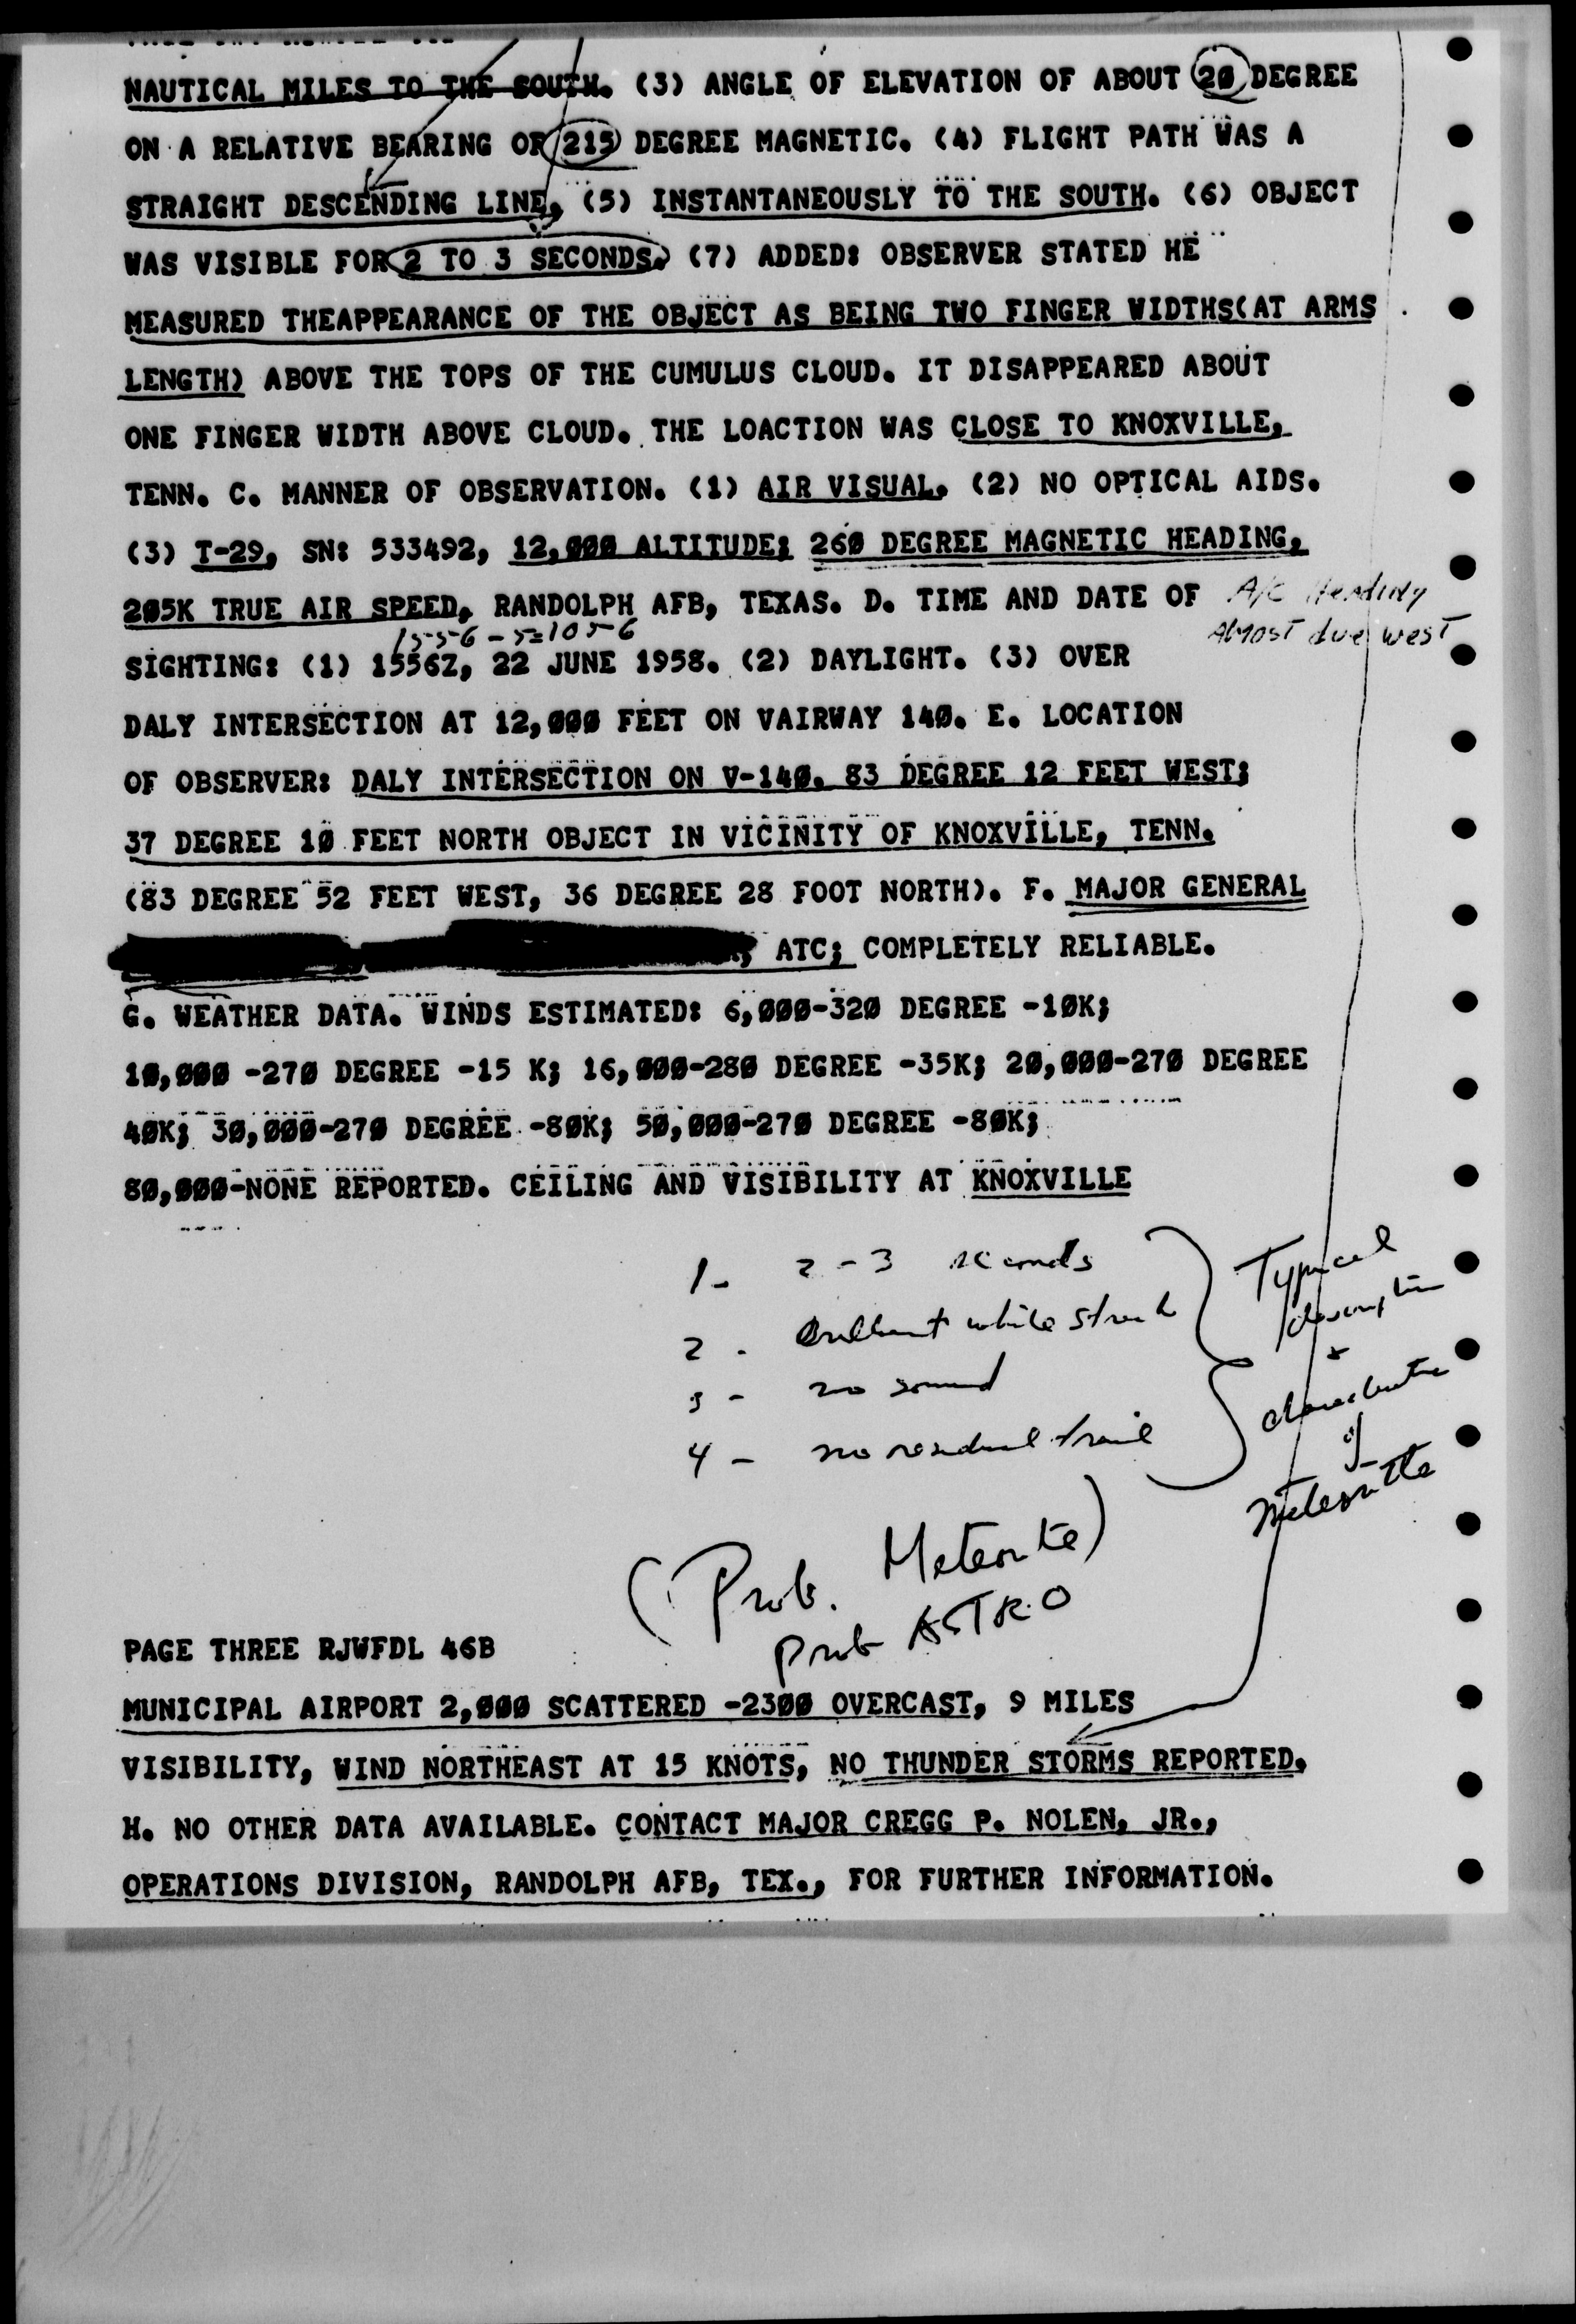 NAUTICAL MILES TO THE SOUTH. (3) ANGLE OF ELEVATION OF ABOUT 20 DEGREE
ON A RELATIVE BEARING OF 215 DEGREE MAGNETIC. (4) FLIGHT PATH WAS A
STRAIGHT DESCENDING LINE. (5) INSTANTANEOUSLY TO THE SOUTH. (6) OBJECT
WAS VISIBLE FOR 2 TO 3 SECONDS. (7) ADDED: OBSERVER STATED HE
MEASURED THEAPPEARANCE OF THE OBJECT AS BEING TWO FINGER WIDTHS(AT ARMS
LENGTH) ABOVE THE TOPS OF THE CUMULUS CLOUD. IT DISAPPEARED ABOUT
ONE FINGER WIDTH ABOVE CLOUD. THE LOACTION WAS CLOSE TO KNOXVILLE,
TENN. C. MANNER OF OBSERVATION. (1) AIR VISUAL. (2) NO OPTICAL AIDS.
(3) T-29, SN: 533492, 12,000 ALTITUDE; 260 DEGREE MAGNETIC HEADING,
205K TRUE AIR SPEED, RANDOLPH AFB, TEXAS. D. TIME AND DATE OF A/C Heading
1556 - 5 = 1056 Almost due west
SIGHTING: (1) 1556Z, 22 JUNE 1958. (2) DAYLIGHT. (3) OVER
DALY INTERSECTION AT 12,000 FEET ON VAIRWAY 140. E. LOCATION
OF OBSERVER: DALY INTERSECTION ON V-140. 83 DEGREE 12 FEET WEST;
37 DEGREE 10 FEET NORTH OBJECT IN VICINITY OF KNOXVILLE, TENN.
(83 DEGREE 52 FEET WEST, 36 DEGREE 28 FOOT NORTH). F. MAJOR GENERAL
, ATC; COMPLETELY RELIABLE.
G. WEATHER DATA. WINDS ESTIMATED: 6,000-320 DEGREE -10K;
10,000 -270 DEGREE -15 K; 16,000-280 DEGREE -35K; 20,000-270 DEGREE
40K; 30,000-270 DEGREE -80K; 50,000-270 DEGREE -80K;
80,000-NONE REPORTED. CEILING AND VISIBILITY AT KNOXVILLE
1- 2-3 seconds
2 - Brilliant white streak
3 - no sound
4 - no residual trail
Typical
description
+
characteristic
of
Meteorite
(Prob. Meteorite)
Prob ASTRO
PAGE THREE RJWFDL 46B
MUNICIPAL AIRPORT 2,000 SCATTERED -2300 OVERCAST, 9 MILES
VISIBILITY, WIND NORTHEAST AT 15 KNOTS, NO THUNDER STORMS REPORTED.
H. NO OTHER DATA AVAILABLE. CONTACT MAJOR CREGG P. NOLEN, JR.,
OPERATIONS DIVISION, RANDOLPH AFB, TEX., FOR FURTHER INFORMATION.